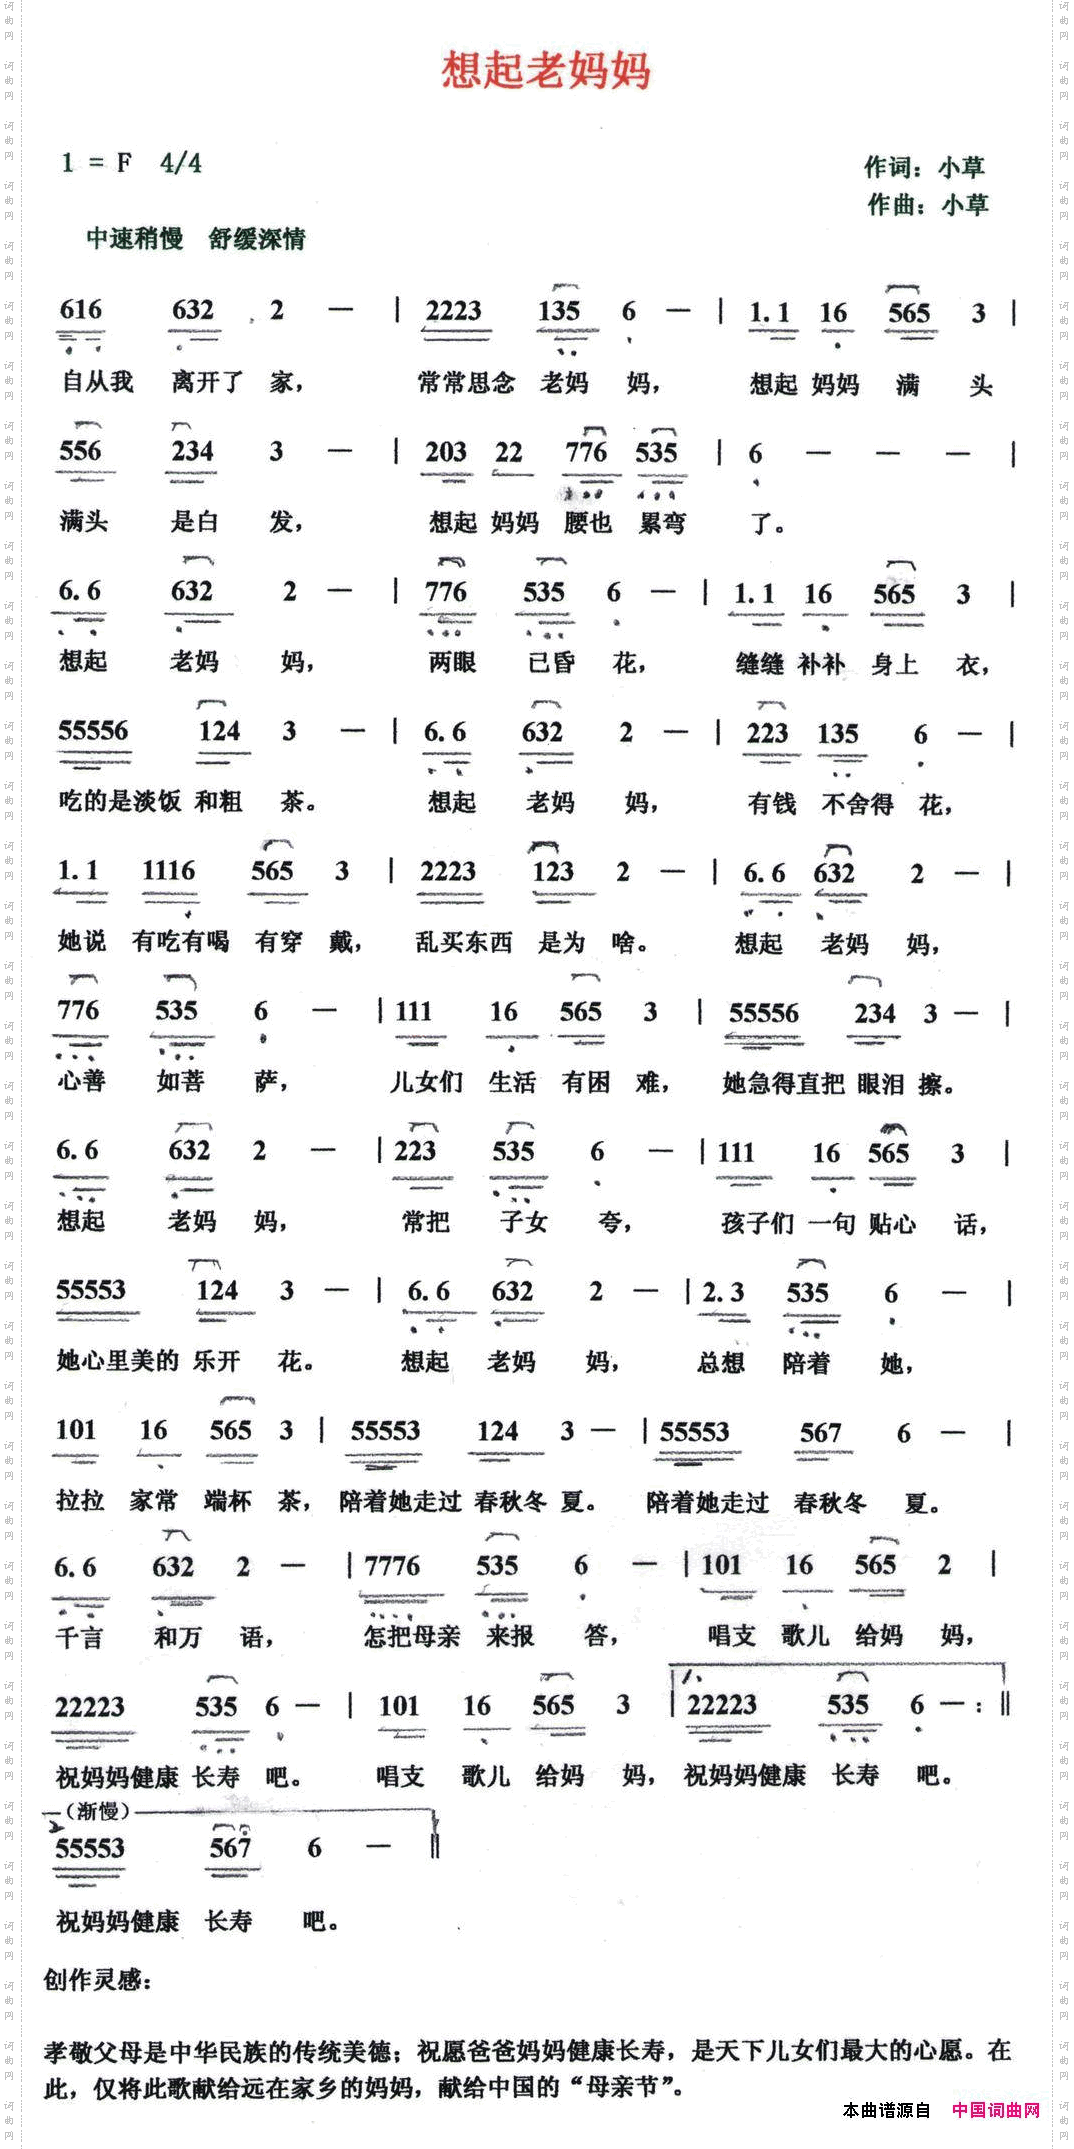 想起老妈妈
1 = F 4/4
作词：小草
作曲：小草
中速稍慢 舒缓深情
616 632 2 — | 2223 135 6 — | 1. 1 16 565 3 |
自从我 离开了 家， 常常思念 老妈 妈， 想起 妈妈 满 头
556 234 3 — | 203 22 776 535 | 6 — — — |
满头 是白 发， 想起 妈妈 腰也 累弯 了。
6. 6 632 2 — | 776 535 6 — | 1. 1 16 565 3 |
想起 老妈 妈， 两眼 已昏 花， 缝缝 补补 身上 衣，
55556 124 3 — | 6. 6 632 2 — | 223 135 6 — |
吃的是淡饭 和粗 茶。 想起 老妈 妈， 有钱 不舍得 花，
1. 1 1116 565 3 | 2223 123 2 — | 6. 6 632 2 — |
她说 有吃有喝 有穿 戴， 乱买东西 是为 啥。 想起 老妈 妈，
776 535 6 — | 111 16 565 3 | 55556 234 3 — |
心善 如菩 萨， 儿女们 生活 有困 难， 她急得直把 眼泪 擦。
6. 6 632 2 — | 223 535 6 — | 111 16 565 3 |
想起 老妈 妈， 常把 子女 夸， 孩子们 一句 贴心 话，
55553 124 3 — | 6. 6 632 2 — | 2. 3 535 6 — |
她心里美的 乐开 花。 想起 老妈 妈， 总想 陪着 她，
101 16 565 3 | 55553 124 3 — | 55553 567 6 — |
拉拉 家常 端杯 茶， 陪着她走过 春秋冬 夏。 陪着她走过 春秋冬 夏。
6. 6 632 2 — | 7776 535 6 — | 101 16 565 2 |
千言 和万 语， 怎把母亲 来报 答， 唱支 歌儿 给妈 妈，
1.
22223 535 6 — | 101 16 565 3 | 22223 535 6 — :‖
祝妈妈健康 长寿 吧。 唱支 歌儿 给妈 妈， 祝妈妈健康 长寿 吧。
2. （渐慢）
55553 567 6 — ‖
祝妈妈健康 长寿 吧。
创作灵感：
孝敬父母是中华民族的传统美德；祝愿爸爸妈妈健康长寿，是天下儿女们最大的心愿。在
此，仅将此歌献给远在家乡的妈妈，献给中国的“母亲节”。
本曲谱源自 中国词曲网